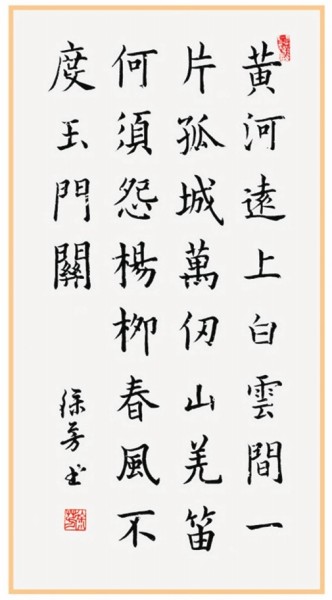 黃河遠上白雲間一
片孤城萬仞山羌笛
何須怨楊柳春風不
度玉門關
徐芳书